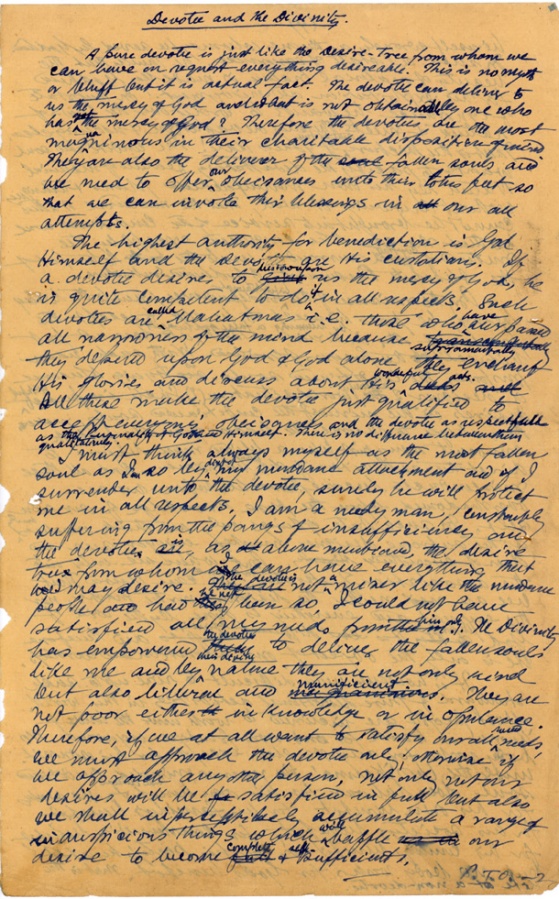 Devotee and the Divinity.
A Pure devotee is just like the desire-tree from whom we
can have on request everything desireable. This is no myth
or bluff but it is actual fact. The devotee can deliver to
us the mercy of God and what is not obtainable by one who
has the mercy of God? Therefore the devotees are the most
magnanimous in their charitable disposition of mind.
They are also the deliverer of the fallen souls and
we need to offer our obeisances unto their lotus feet so
that we can invoke their blessings in our all
attempts.
The highest authority for benediction is God
Himself and the devotees are His custodians. If
a devotee desires to us the mercy of God, he
is quite competent to do it in all respects. Such
devotees are called Mahatmas i.e. those who have
all narrowness of the mind because
they depend upon God & God alone. They
His glories and discuss about His wonderful acts.
All these make the devotee just qualified to
accept everyone's obeisances and the devotee as respectfull
as Himself. There is no difference between them
qualitatively
I must think always myself as the most fallen
soul as I am so by my mundane attachment and if I
surrender unto the devotee, surely he will protect
me in all respects. I am a needy man, constantly
suffering from the pangs of insufficiency and
the devotee is, as above mentioned, the desire
tree from whom I can have everything that
I may desire. The devotee is not a miser like the mundane
people and had he been so, I could not have
satisfied all my needs from him only. The Divinity
has empowered the devotee to deliver the fallen souls
like me and by their nature they are not only kind
but also liberal and munificient. They are
not poor either in knowledge or in opulence.
Therefore, if we at all want to satisfy our all needs,
we must approach the devotee only; otherwise if
we approach any other person, not only not our
desires will be satisfied in full but also
we shall imperceptibly accumulate a range of
inauspicious things which will baffle our
desire to become completely self sufficients.
P.T.O—2